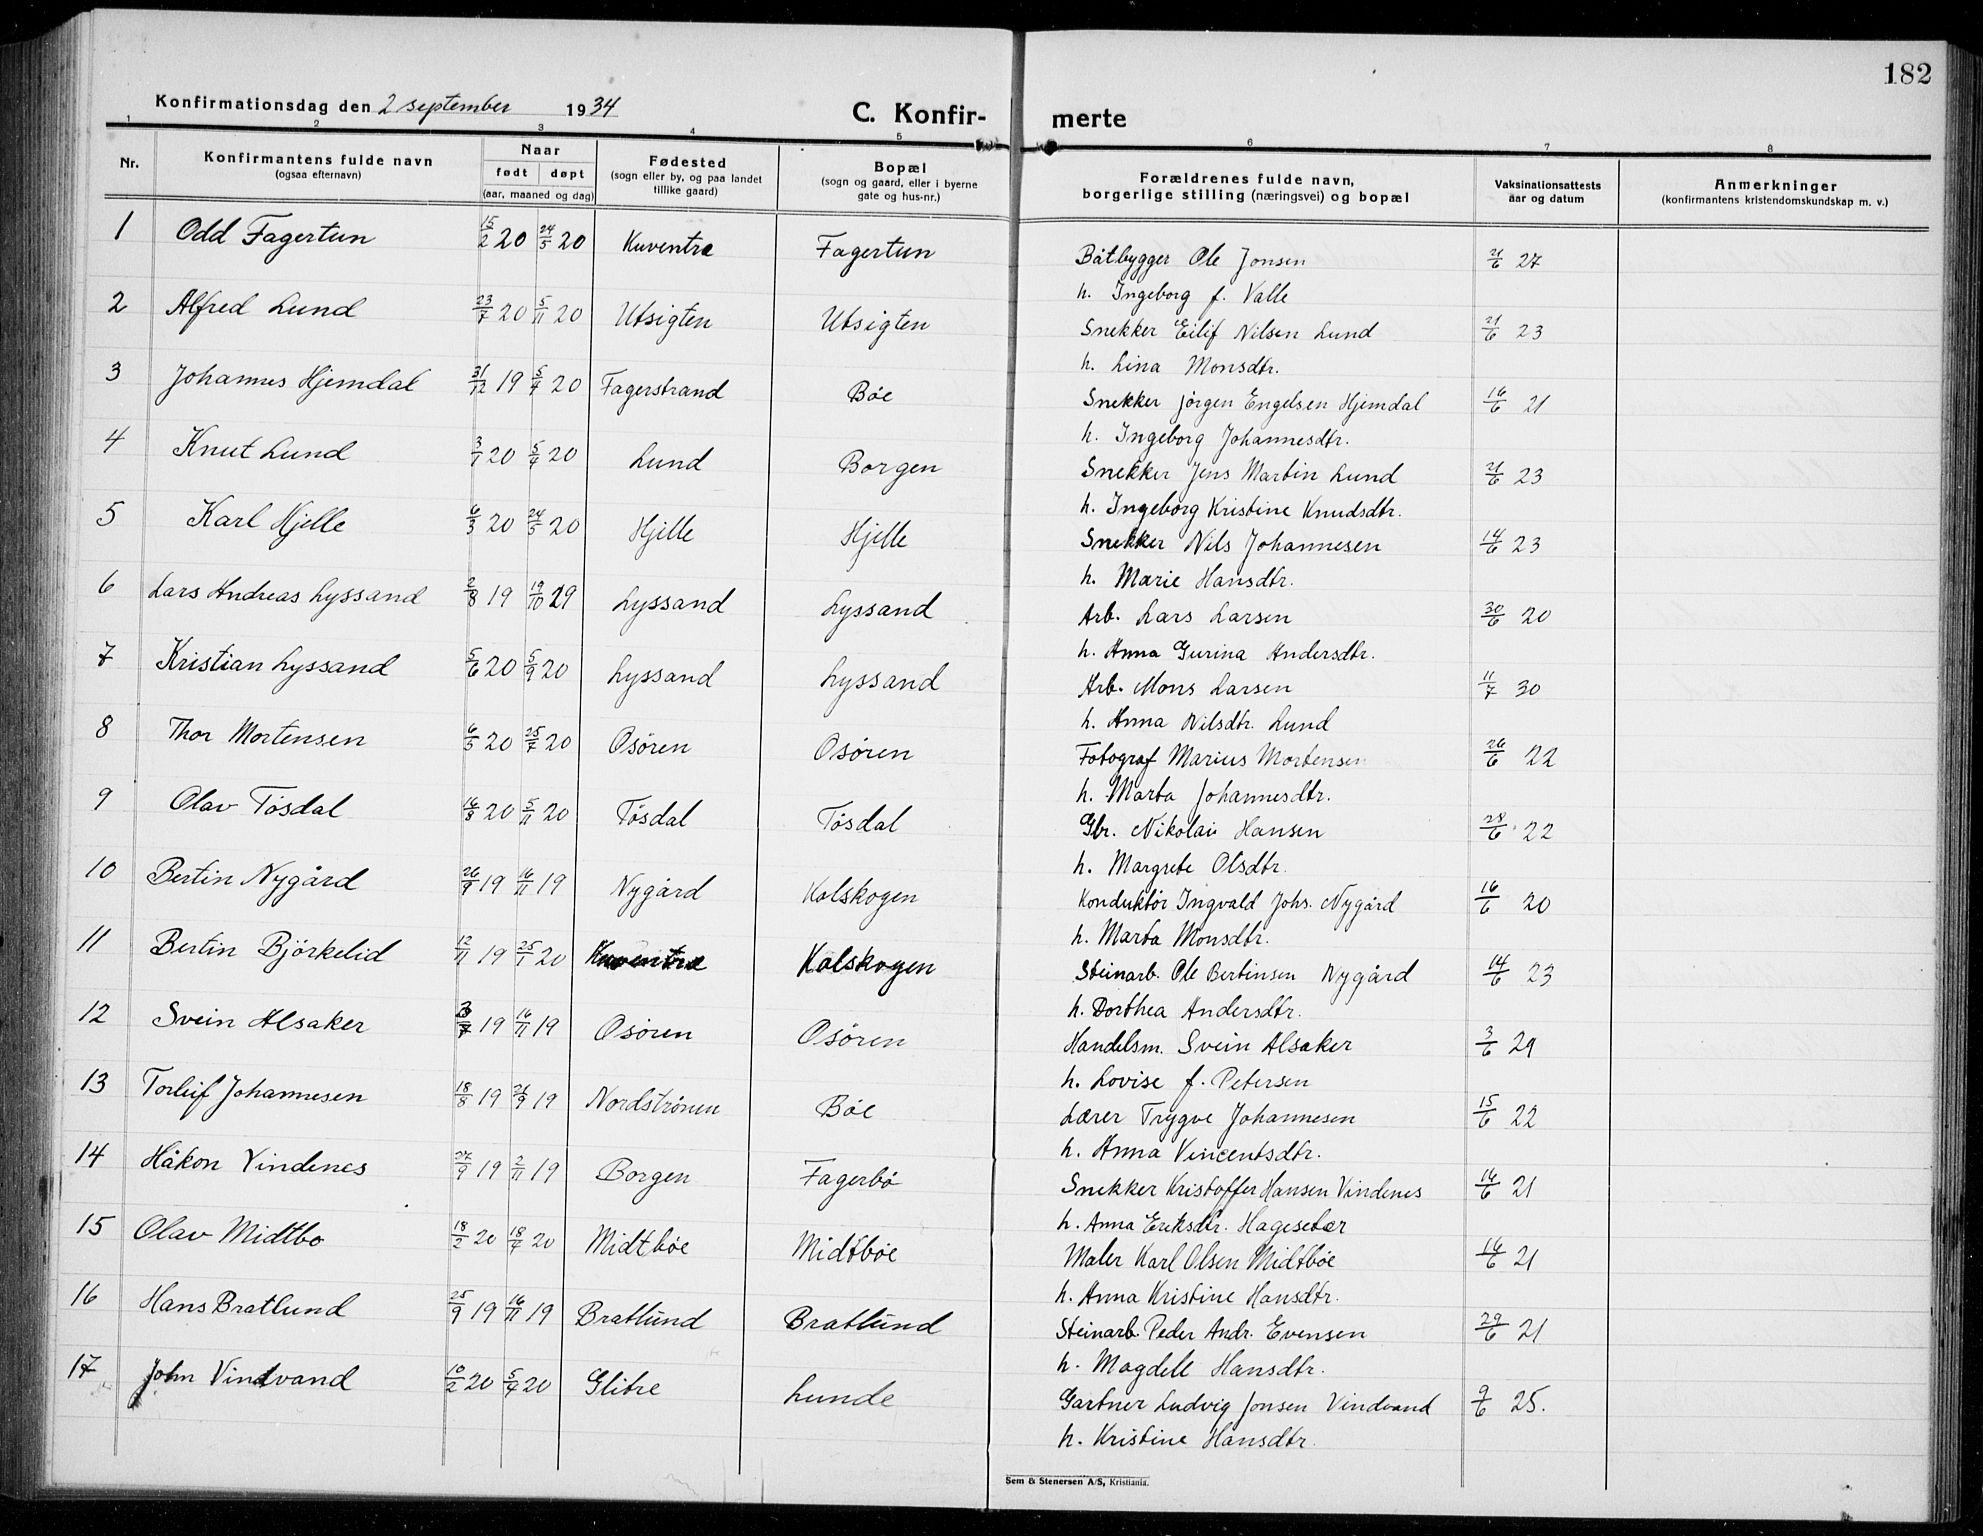 182
Konfirmationsdag den 2 september 1934
C. Konfir- merte
1 2 3 4 5 6 7 8
Nr. Konfirmantens fulde navn (ogsaa efternavn) Naar født døpt (aar, maaned og dag) Fødested (sogn eller by, og paa landet tillike gaard) Bopæl (sogn og gaard, eller i byerne gate og hus-nr.) Forældrenes fulde navn, borgerlige stilling (næringsvei) og bopæl Vaksinationsattests aar og datum Anmerkninger (konfirmantens kristendomskundskap m. v.)
1 Odd Fagertun 15/2 20 24/5 20 Kuventræ Fagertun Båtbygger Ole Jonsen 21/6 27
h. Ingeborg f. Valle
2 Alfred Lund 23/7 20 5/11 20 Utsigten Utsigten Snekker Eilif Nilsen Lund 21/6 23
h. Lina Monsdtr.
3 Johannes Hjemdal 31/12 19 5/4 20 Fagerstrand Bøe Snekker Jørgen Engelsen Hjemdal 16/6 21
h. Ingeborg Johannesdtr.
4 Knut Lund 3/1 20 5/4 20 Lund Borgen Snekker Jens Martin Lund 21/6 23
h. Ingeborg Kristine Knudsdtr.
5 Karl Hjelle 6/3 20 24/5 20 Hjelle Hjelle Snekker Nils Johannesen 14/6 23
h. Marie Hansdtr.
6 Lars Andreas Lyssand 2/8 19 19/10 29 Lyssand Lyssand Arb. Lars Larsen 30/6 20
h. Anna Gurina Andersdtr.
7 Kristian Lyssand 5/6 20 5/9 20 Lyssand Lyssand Arb. Mons Larsen 11/7 30
h. Anna Nilsdtr. Lund
8 Thor Mortensen 6/5 20 25/7 20 Osøren Osøren Fotograf Marius Mortensen 26/6 22
h. Marta Johannesdtr.
9 Olav Tøsdal 16/8 20 5/11 20 Tøsdal Tøsdal Gbr. Nikolai Hansen 28/6 22
h. Margrete Olsdtr.
10 Bertin Nygård 26/9 19 16/11 19 Nygård Kolskogen Konduktør Ingvald Johs. Nygård 16/6 20
h. Marta Monsdtr.
11 Bertin Bjørkelid 12/11 19 25/1 20 Kuventræ Kolskogen Steinarb. Ole Bertinsen Nygård 14/6 23
h. Dorthea Andersdtr.
12 Svein Alsaker 3/7 19 16/11 19 Osøren Osøren Handelsm. Svein Alsaker 3/6 29
h. Lovise f. Petersen
13 Torleif Johannesen 18/8 19 21/9 19 Nordstrønen Bøe Lærer Trygve Johannesen 15/6 22
h. Anna Vincentsdtr.
14 Håkon Vindenes 27/9 19 2/11 19 Borgen Fagerbø Snekker Kristoffer Hansen Vindenes 16/6 21
h. Anna Eriksdtr. Hagesetær
15 Olav Midtbø 18/2 20 18/4 20 Midtbøe Midtbøe Maler Karl Olsen Midtbøe 16/6 21
h. Anna Kristine Hansdtr.
16 Hans Bratlund 25/9 19 16/11 19 Bratlund Bratlund Steinarb. Peder Andr. Evensen 29/6 21
h. Magdell Hansdtr.
17 John Vindvand 10/2 20 5/4 20 Glitre Lunde Gartner Ludvig Jonsen Vindvand 9/6 25.
h. Kristine Hansdtr.
Sem & Stenersen A/S, Kristiania.